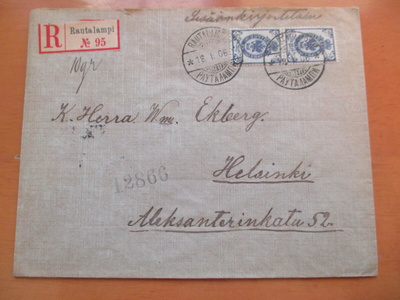 Sisäänkirjoitetaan
R Rautalampi
№ 95
RAUTALAMPI
18.1.06
PAYTAJAMEN
K. Herra Wm. Ekberg.
Helsinki
12866
Aleksanterinkatu 52.